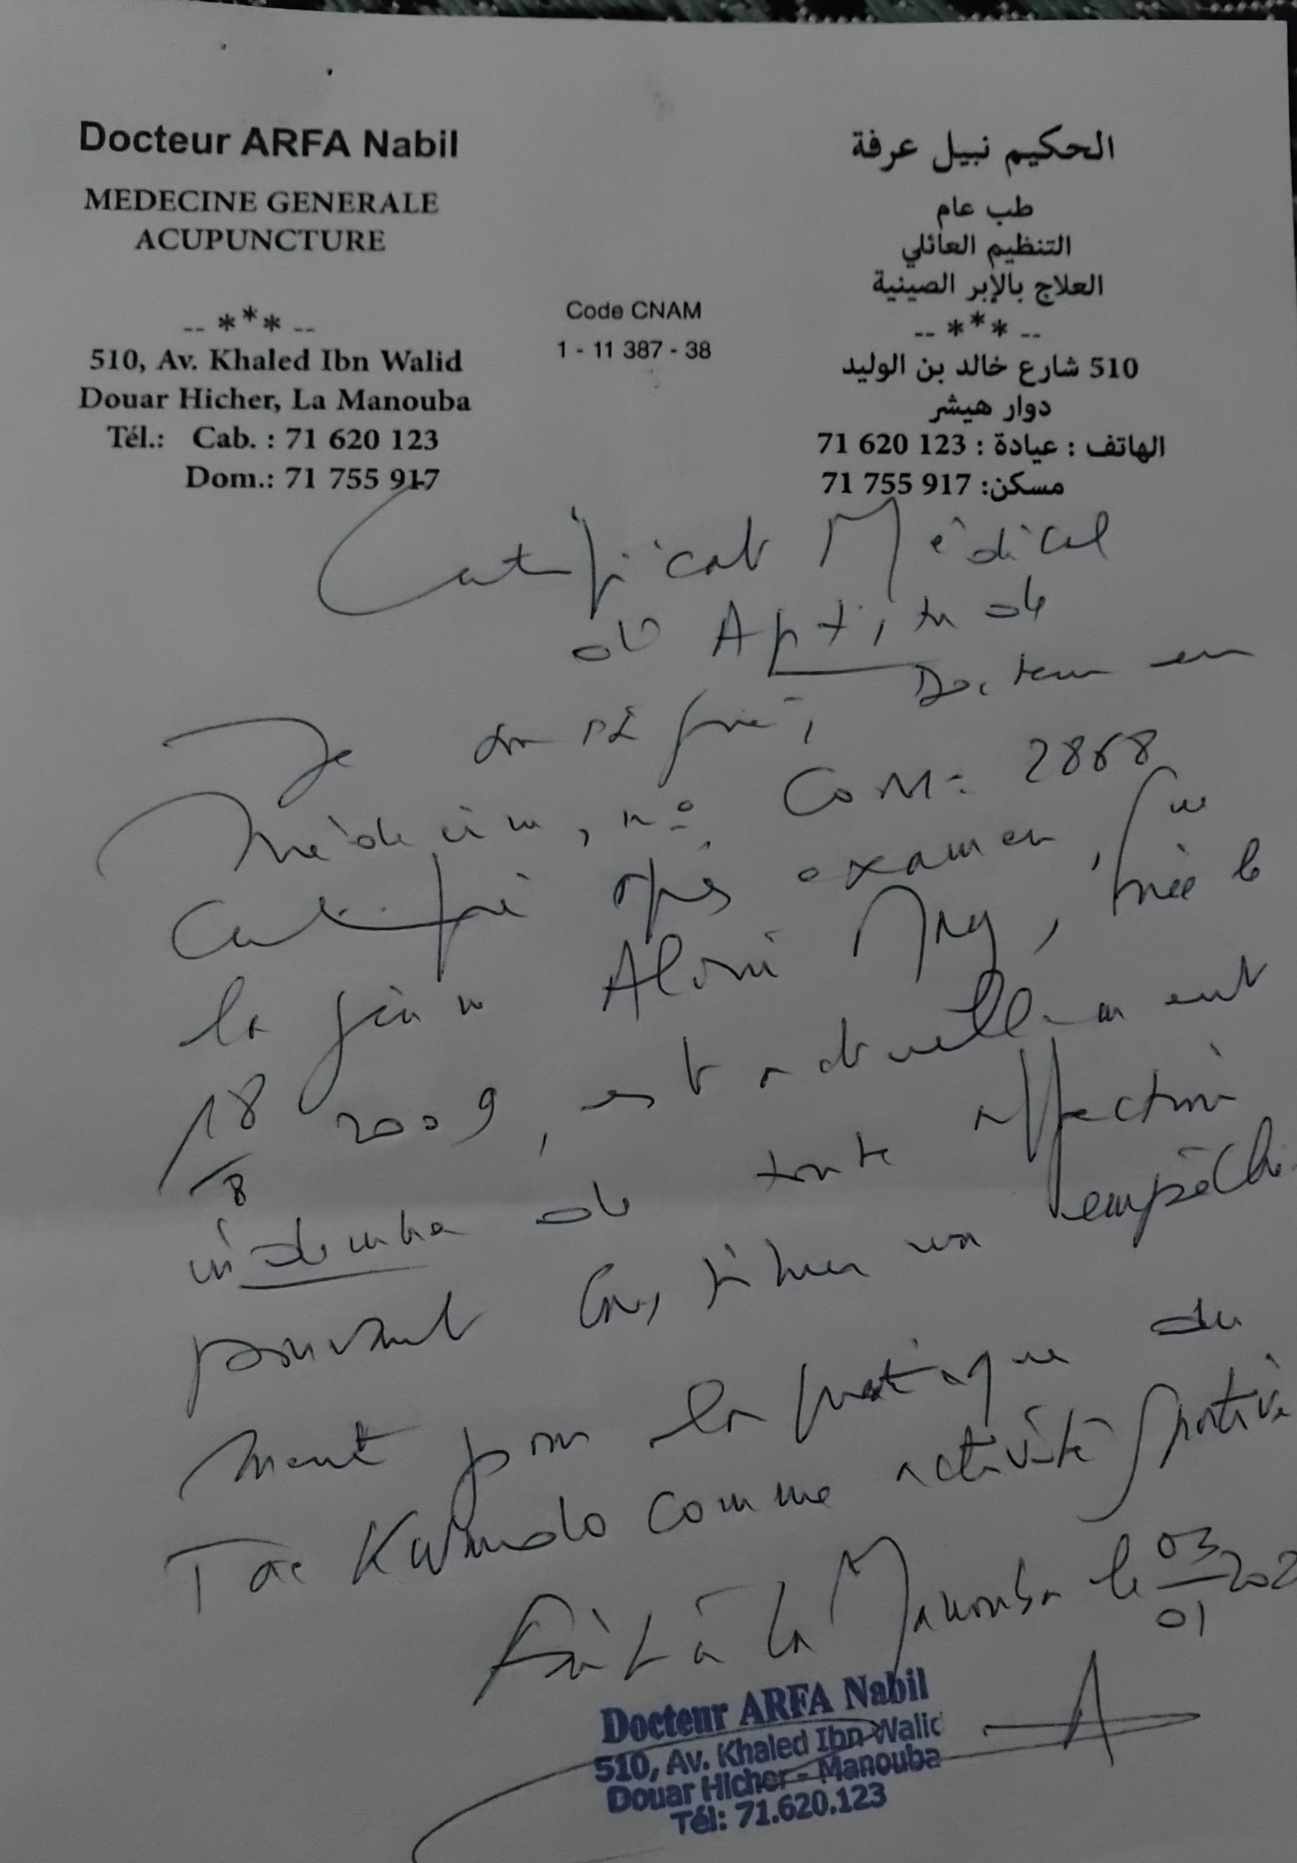 Docteur ARFA Nabil
MEDECINE GENERALE
ACUPUNCTURE
-- *** --
510, Av. Khaled Ibn Walid
Douar Hicher, La Manouba
Tél.: Cab. : 71 620 123
Dom.: 71 755 917
Code CNAM
1 - 11 387 - 38
الحكيم نبيل عرفة
طب عام
التنظيم العائلي
العلاج بالإبر الصينية
-- *** --
510 شارع خالد بن الوليد
دوار هيشر
الهاتف : عيادة : 123 620 71
مسكن: 917 755 71
Certificat Médical
d'Aptitude
Je soussigné, Docteur en
Médecine, n° COM: 2868
Certifie après examen, que
la jeune, née le
18/8 2009, est actuellement
indemne de toute affection
pouvant constituer un empêche
ment pour la pratique du
Tae Kwondo comme activité sportive
Fait à la Manouba le 03/01
Docteur ARFA Nabil
510, Av. Khaled Ibn Walid
Douar Hicher - Manouba
Tél: 71.620.123